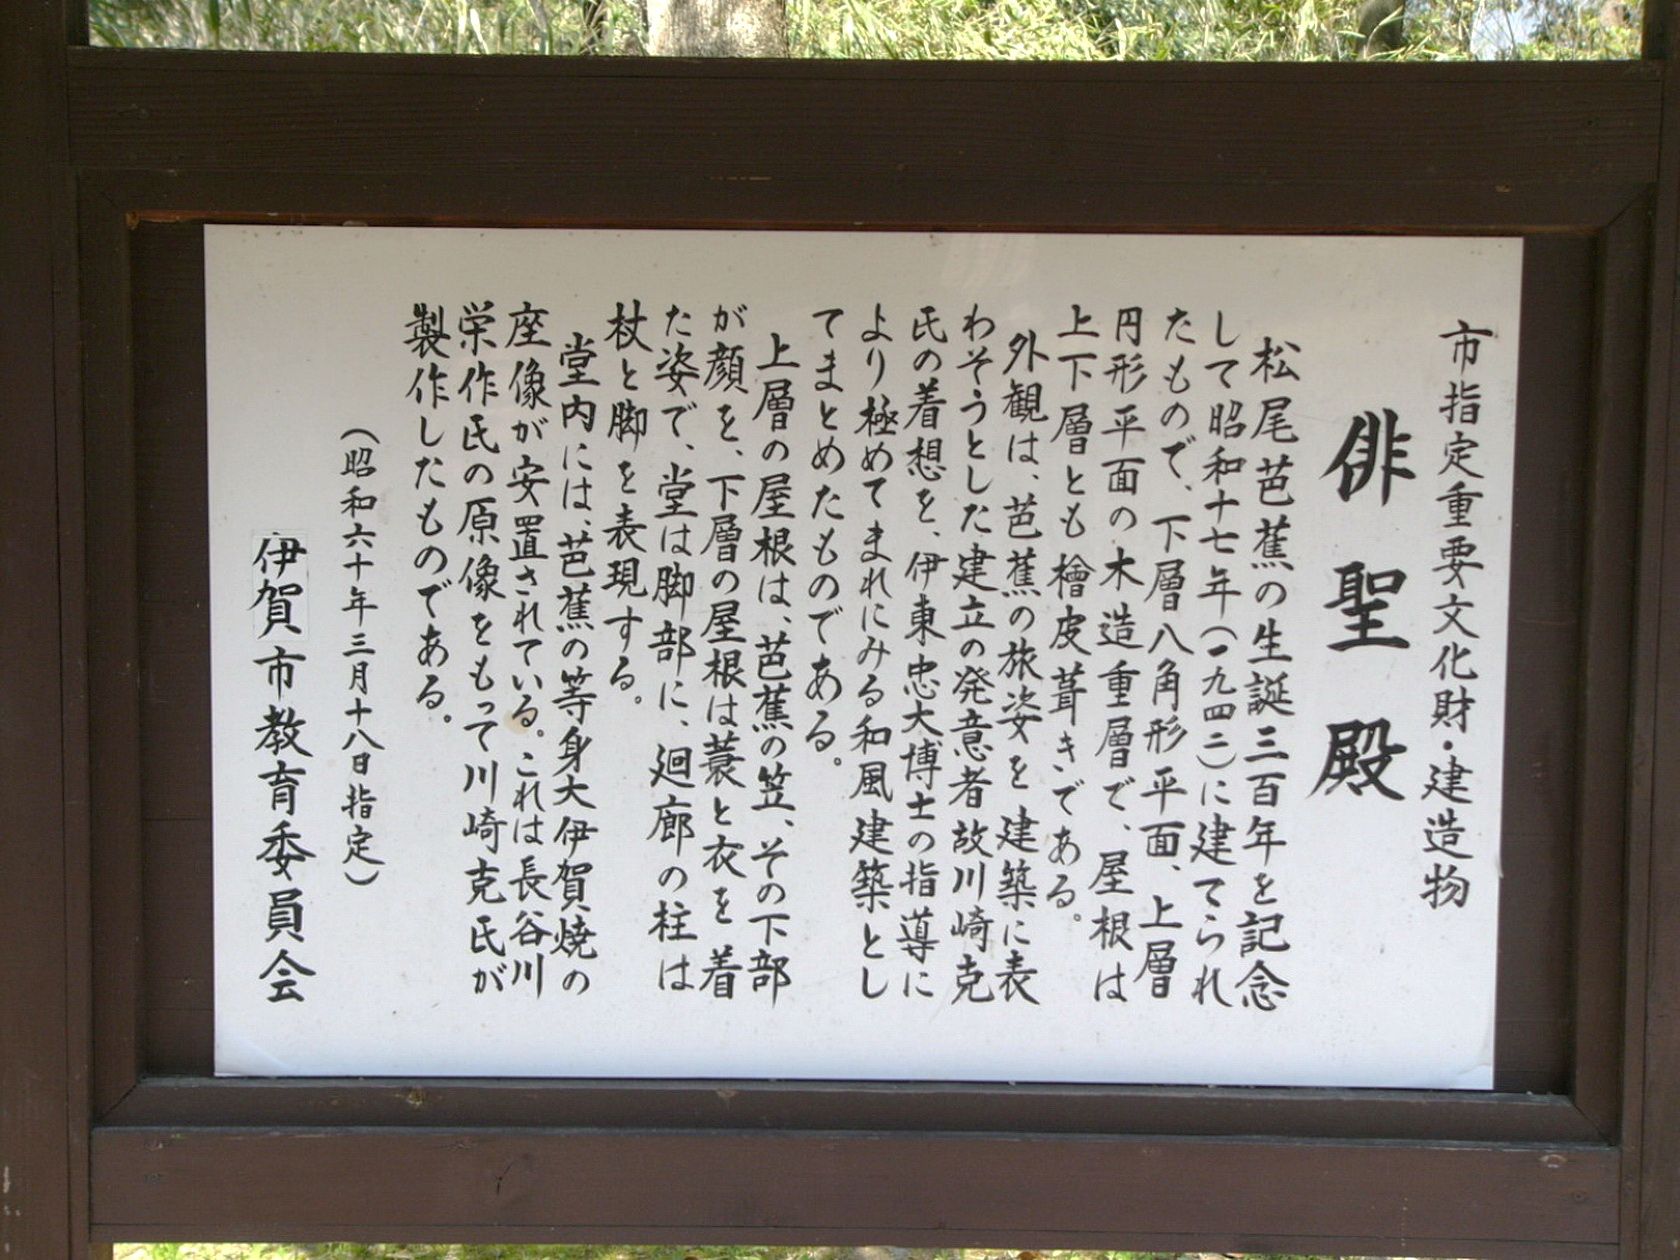 市指定重要文化財・建造物
俳聖殿
松尾芭蕉の生誕三百年を記念
して昭和十七年(一九四二)に建てられ
たもので、下層八角形平面、上層
円形平面の木造重層で、屋根は
上下層とも檜皮葺きである。
外観は、芭蕉の旅姿を建築に表
わそうとした建立の発意者故川崎克
氏の着想を、伊東忠太博士の指導に
より極めてまれにみる和風建築とし
てまとめたものである。
上層の屋根は、芭蕉の笠、その下部
が顔を、下層の屋根は蓑と衣を着
た姿で、堂は脚部に、廻廊の柱は
杖と脚を表現する。
堂内には、芭蕉の等身大伊賀焼の
座像が安置されている。これは長谷川
栄作氏の原像をもって川崎克氏が
製作したものである。
(昭和六十年三月十八日指定)
伊賀市教育委員会